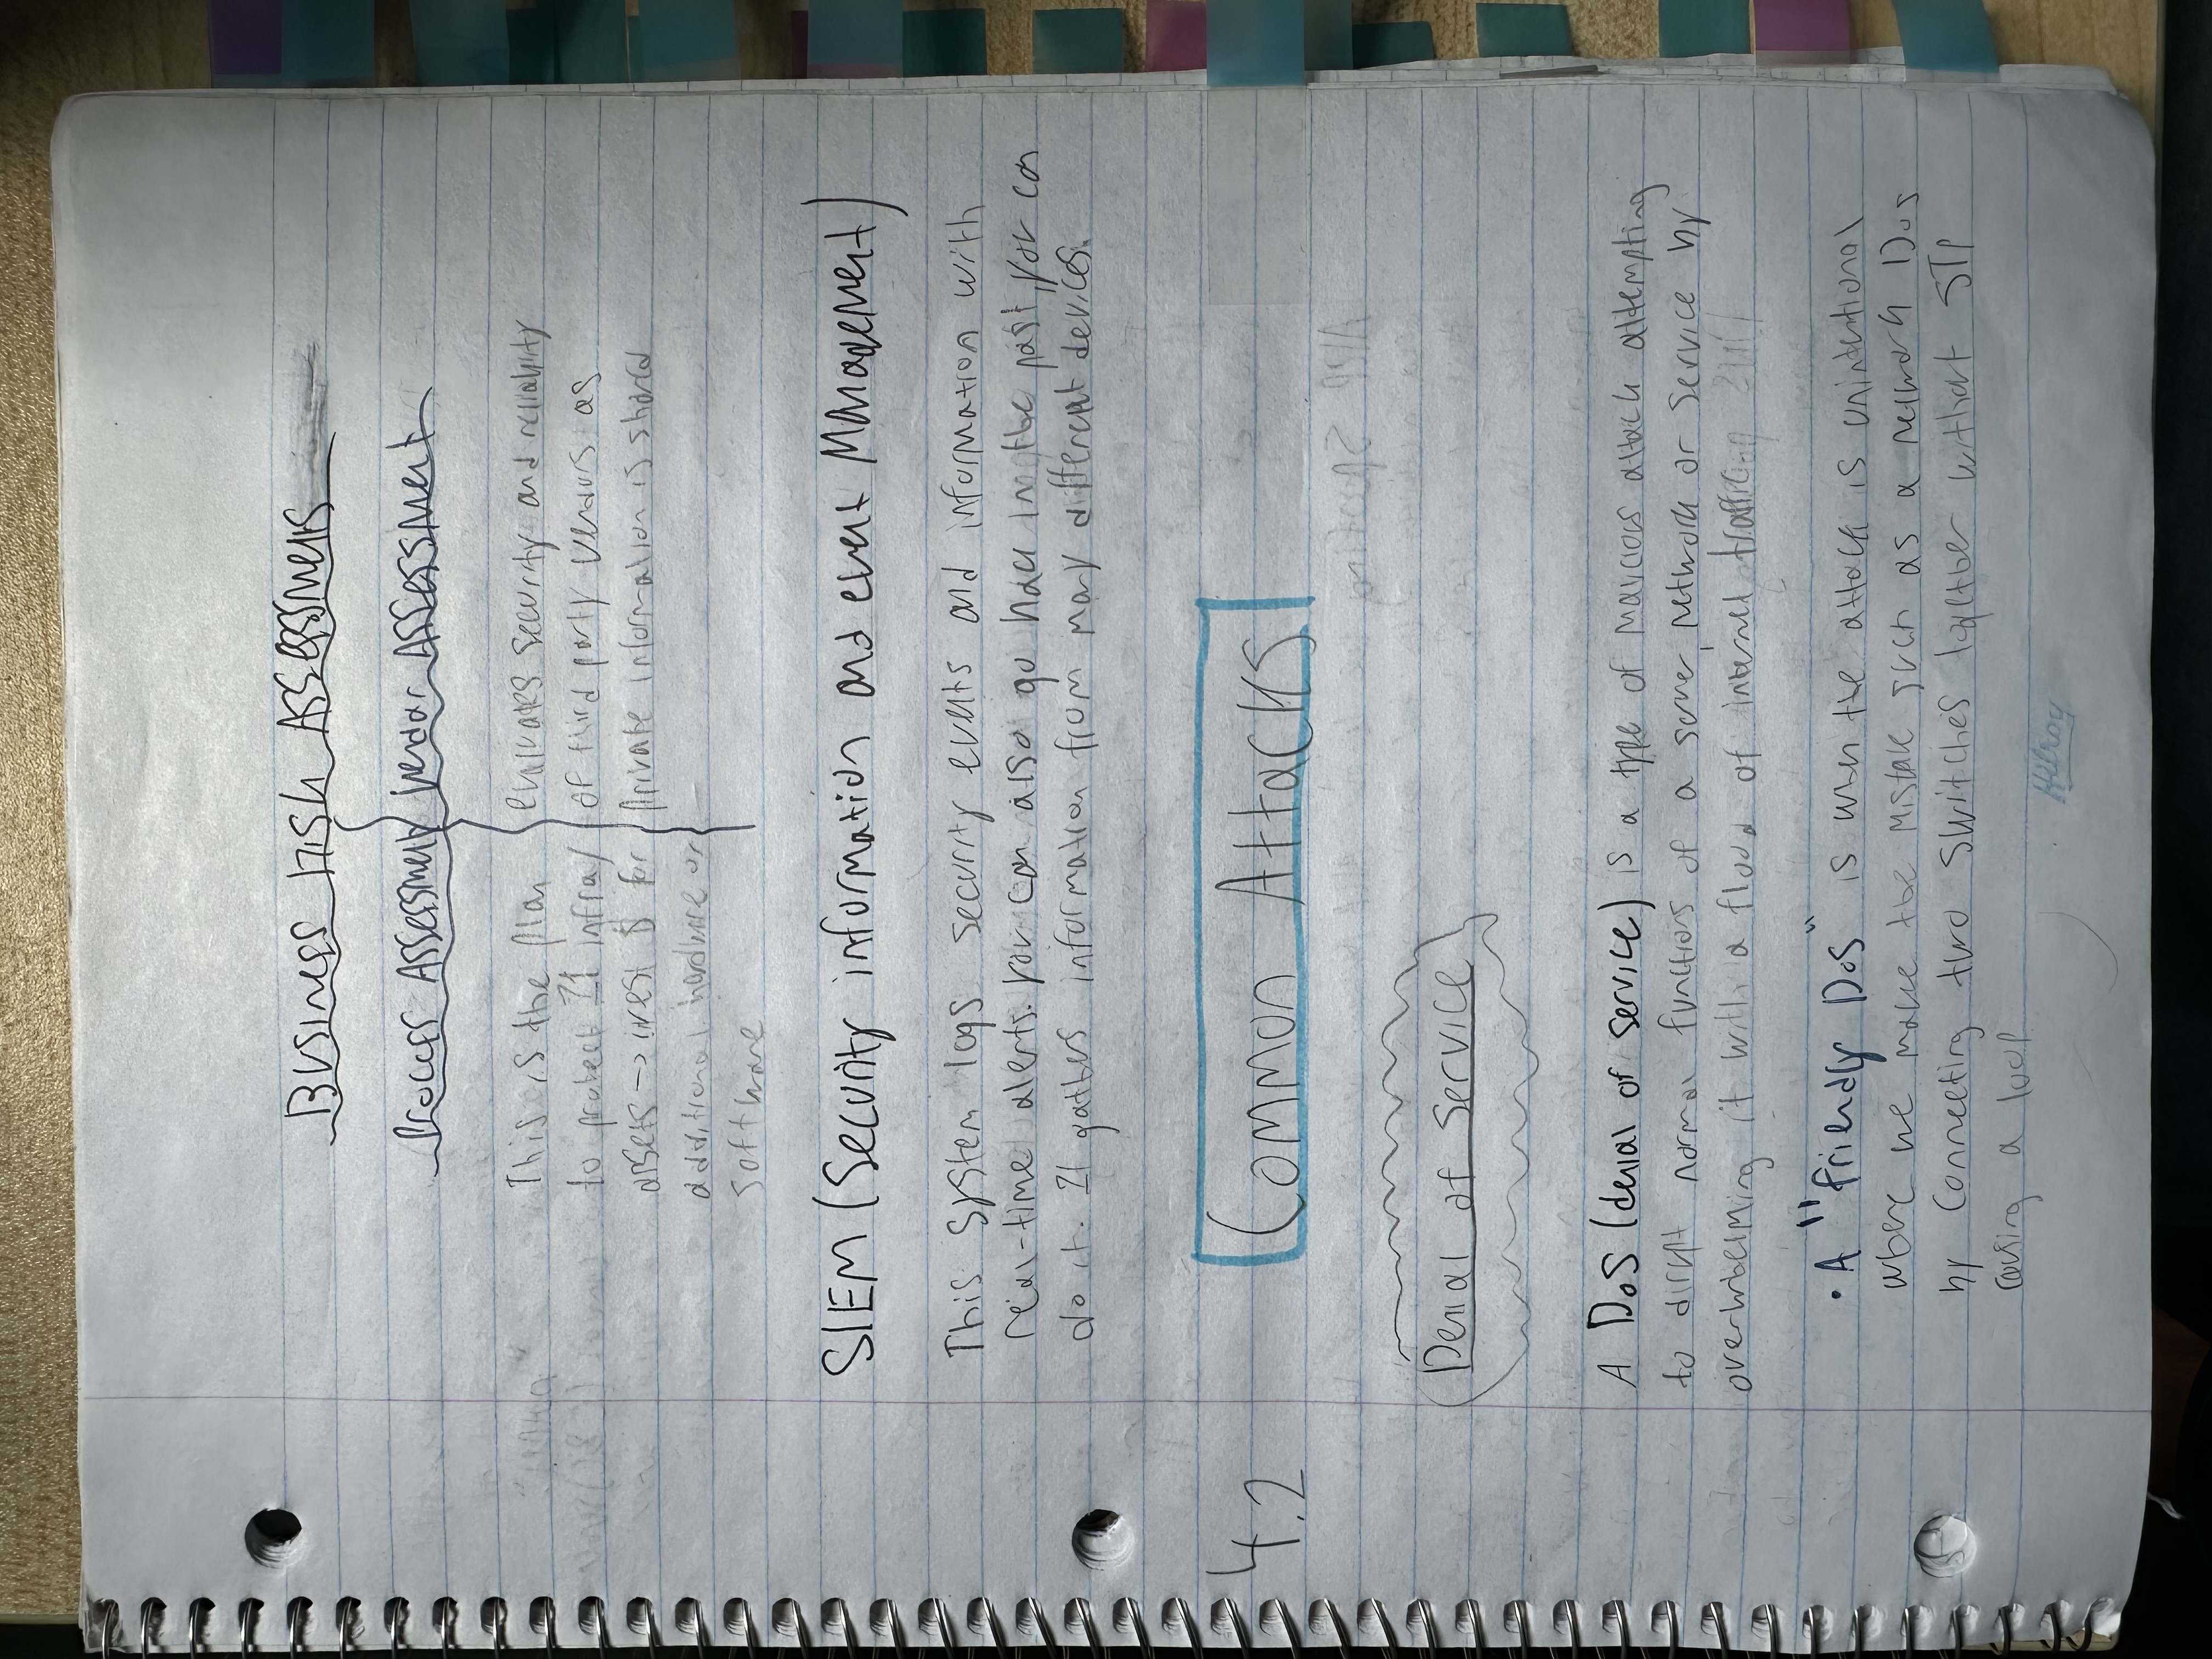 Business Risk Assessments
Process Assessment
Vendor Assessment
This is the plan
to protect It infra/
assets → invest $ for
additional hardware or
software
evaluates security and reliability
of third party vendors as
private information is shared
SIEM (Security information and event Management)
This system logs security events and information with
real-time alerts. You can also go back in the past, you can
do it. It gathers information from many different devices.
4.2
Common Attacks
Denial of Service
A DoS (denial of service) is a type of malicious attack attempting
to disrupt normal functions of a server, network or service by
overwhelming it with a flood of internet traffic
• A "friendly DoS" is when the attack is unintentional
where we make the mistake such as a network Dos
by connecting two switches together without STP
causing a loop
Hilroy